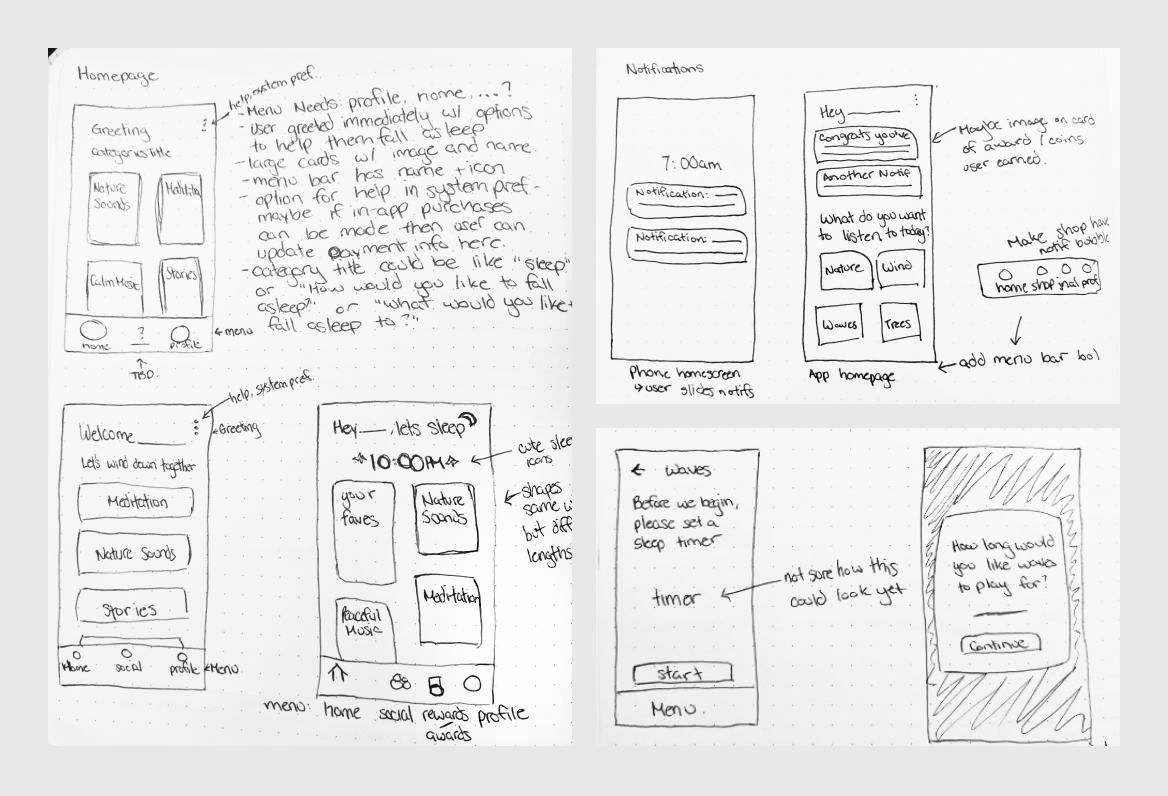 Homepage
help, system pref.
Greeting
categories title
Nature
Sounds
Calm Music
Stories
home
?
profile
← menu
TBD.
- Menu Needs: profile, home, ....?
- user greeted immediately w/ options
to help them fall asleep
- large cards w/ image and name
- menu bar has name + icon
- option for help in system pref -
maybe if in-app purchases
can be made then user can
update payment info here.
- category title could be like "sleep"
or "How would you like to fall
asleep?" or "what would you like
fall asleep to?"
help, system pref.
Welcome
Greeting
Let's wind down together
Meditation
Nature Sounds
Stories
Home
social
profile
Menu
Hey ___, lets sleep
10:00PM
cute
icons
your
faves
Nature
Sounds
shapes
same
but
lengths
Peaceful
Music
Meditation
menu: home social rewards profile
awards
Notifications
7:00am
Notification:
Notification:
Phone homescreen
↳ user slides notifs
Hey ___
Congrats you've
Another Notif
What do you want
to listen to today?
Nature
Wind
Waves
Trees
App homepage
Maybe image on card
of award / coins
user earned.
Make shop have
notif bubble
home shop prof
add menu bar
← waves
Before we begin,
please set a
sleep timer
timer
not sure how this
could look yet
start
Menu.
How long would
you like waves
to play for?
Continue